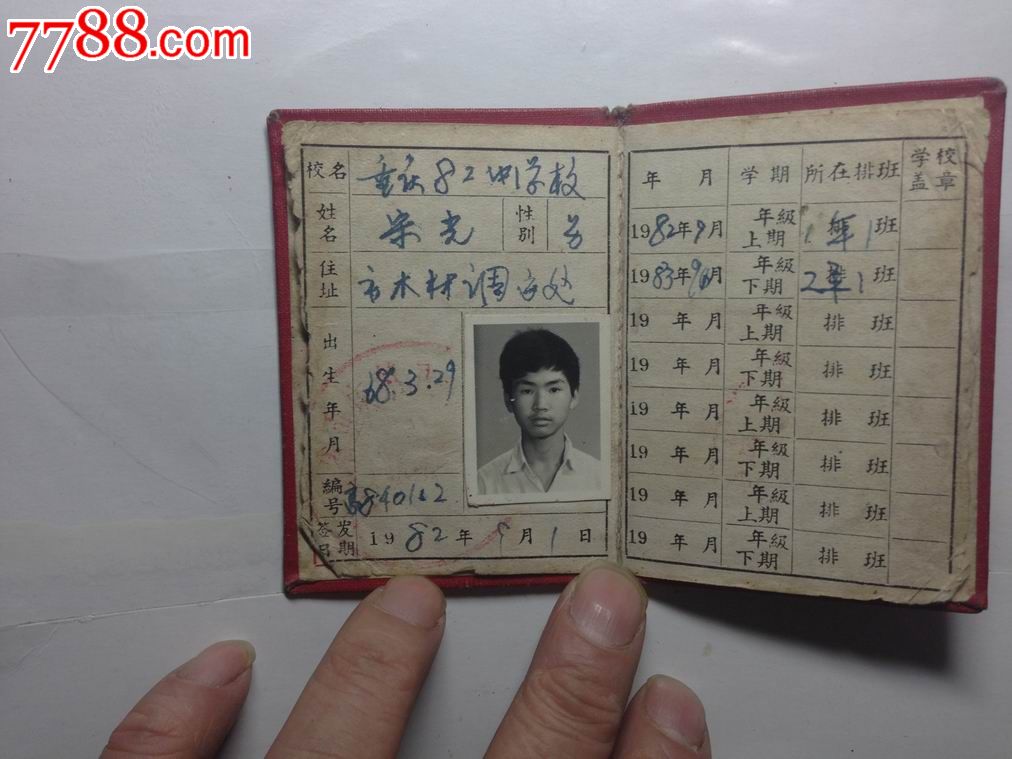 7788.com
校名 重庆82中学校
姓名 宋光 性别 男
住址 市木材调
出生年月 68.3.29
编号 高840112
签发日期 1982年9月1日
年 月 学期 所在排班 学校盖章
1982年9月 年级上期 1年1班
1983年9月 年级下期 2年1班
19 年 月 年级上期 排 班
19 年 月 年级下期 排 班
19 年 月 年级上期 排 班
19 年 月 年级下期 排 班
19 年 月 年级上期 排 班
19 年 月 年级下期 排 班